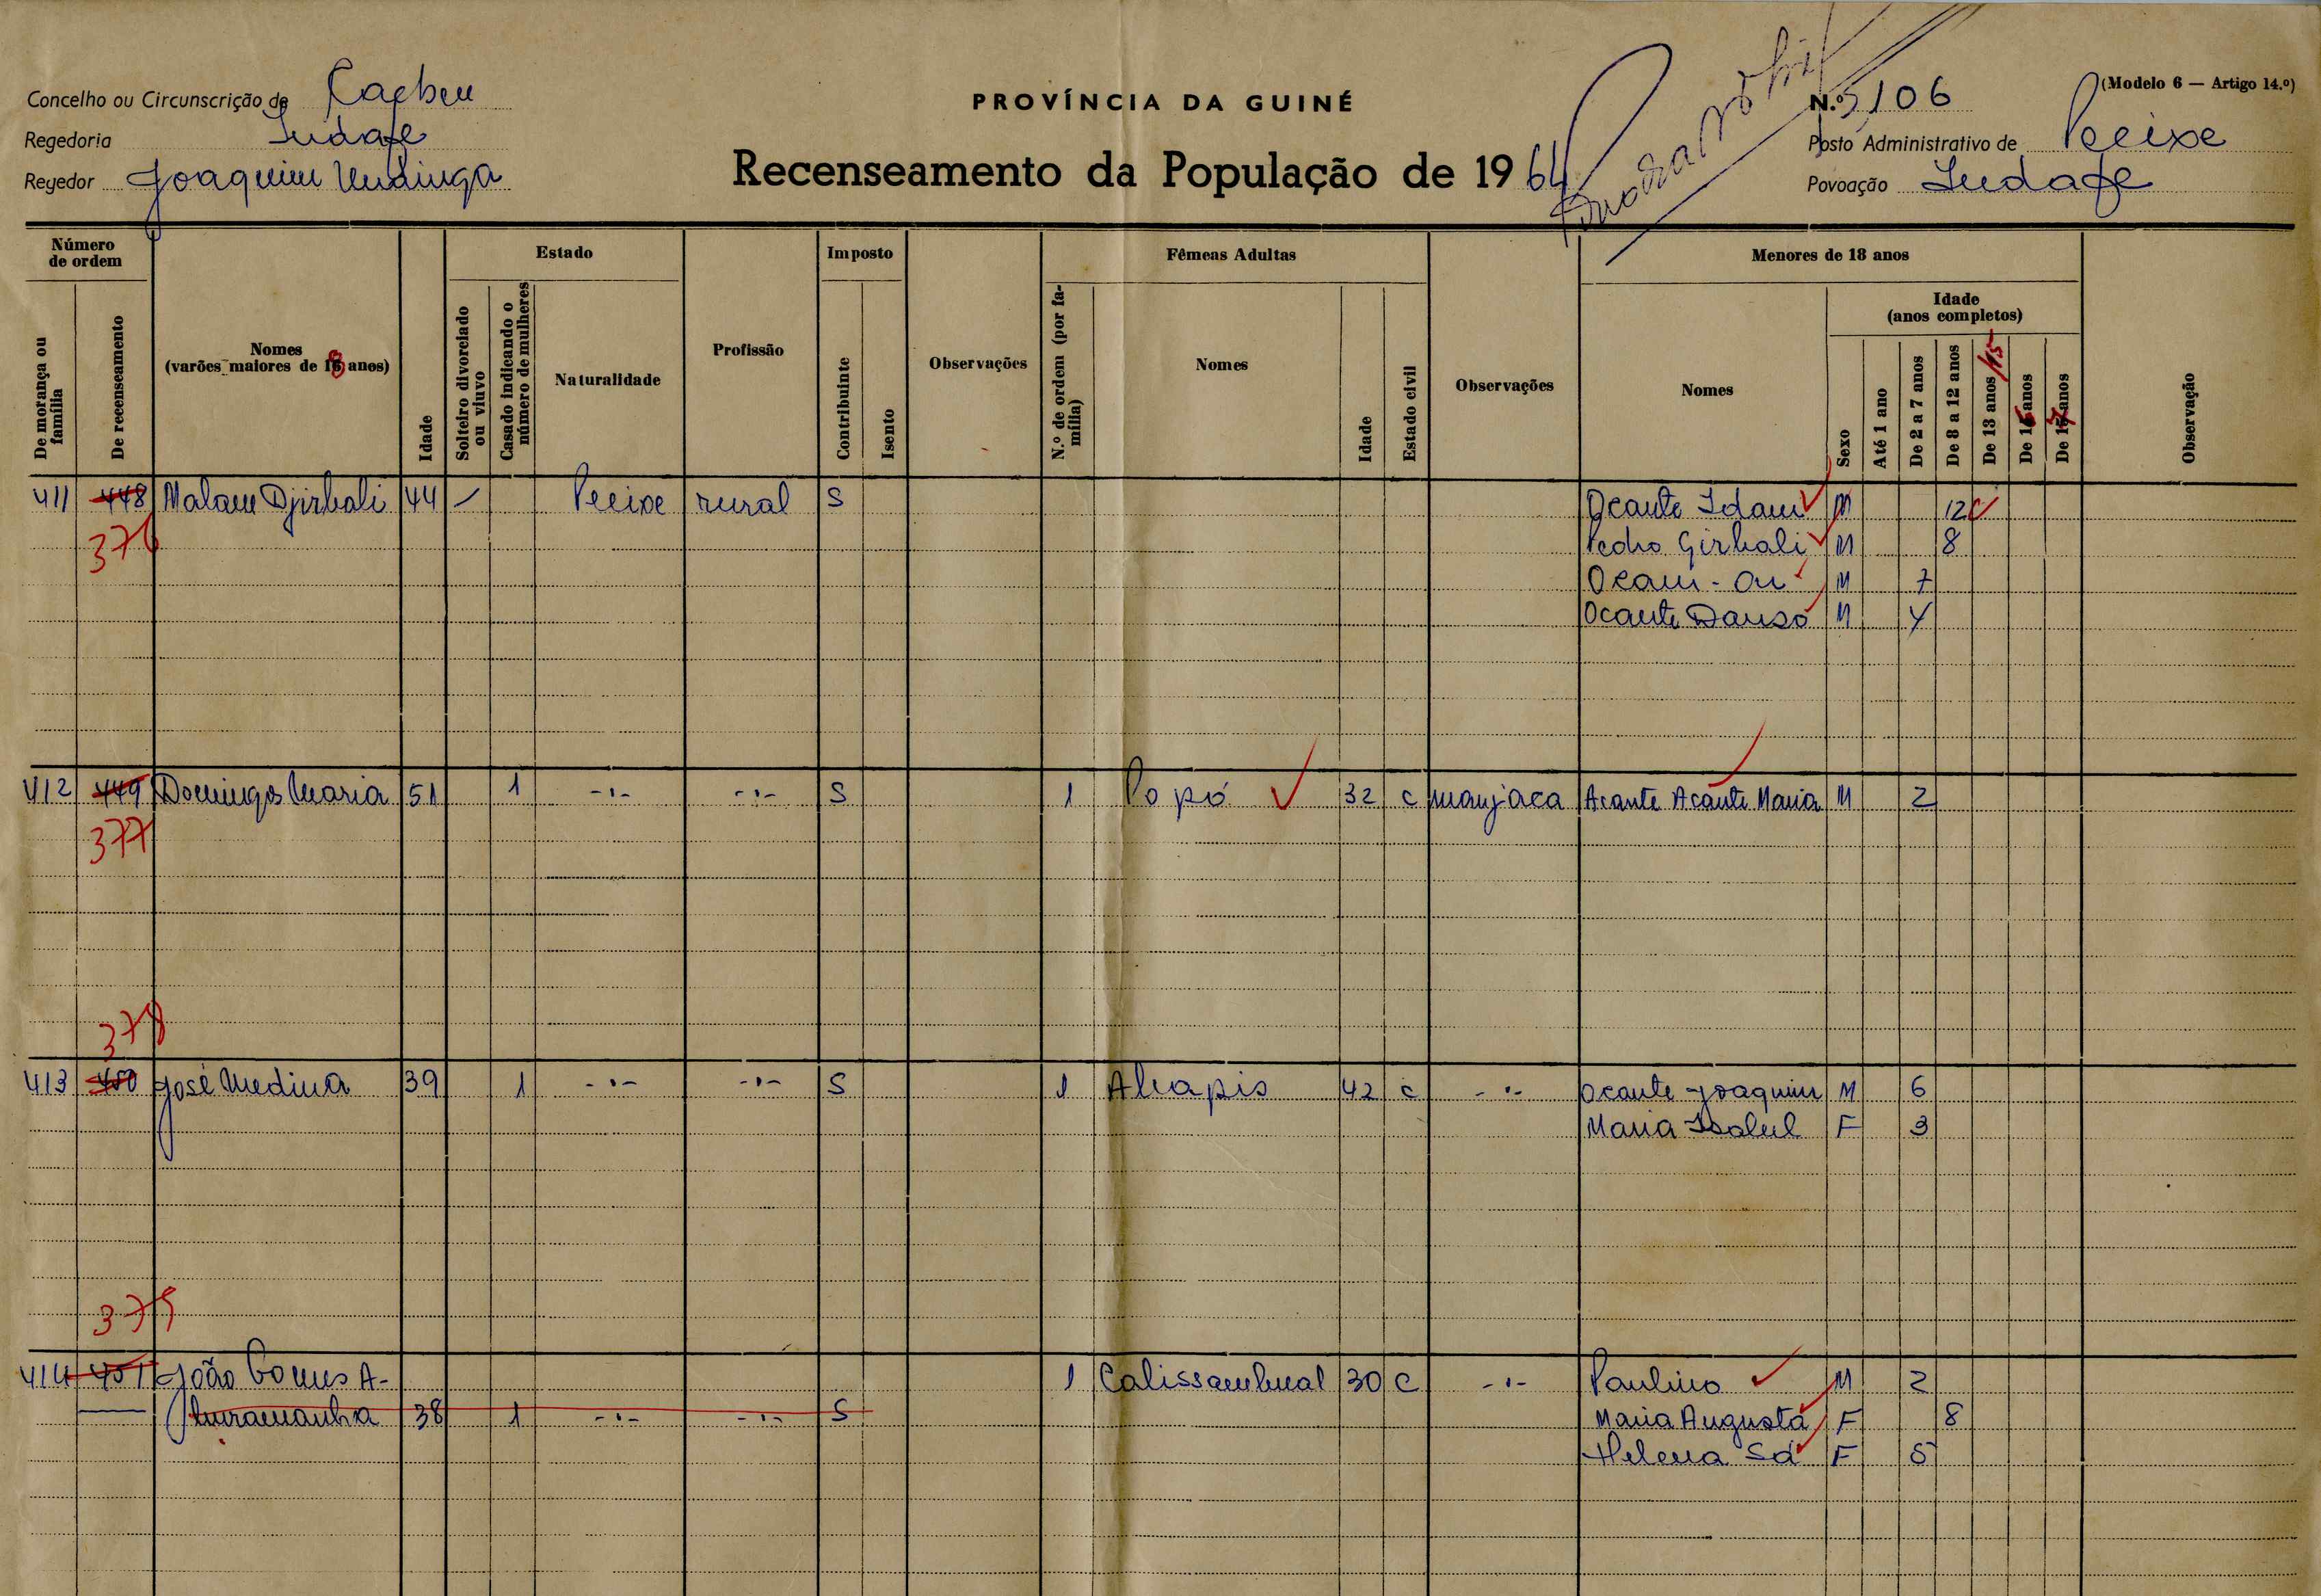 Concelho ou Circunscrição de
Regedoria
Regedor Joaquim
PROVÍNCIA DA GUINÉ
Recenseamento da População de 1964
(Modelo 6 — Artigo 14.º)
N.º 5106
Posto Administrativo de Peeixe
Povoação
Número de ordem
De morança ou família
De recenseamento
Nomes
(varões maiores de 18 anos)
Idade
Estado
Solteiro divorciado ou viuvo
Casado indicando o número de mulheres
Naturalidade
Profissão
Imposto
Contribuinte
Isento
Observações
Fêmeas Adultas
N.º de ordem (por família)
Nomes
Idade
Estado civil
Observações
Menores de 18 anos
Nomes
Sexo
Idade
(anos completos)
Até 1 ano
De 2 a 7 anos
De 8 a 12 anos
De 13 anos /15
De 16 anos
De 17 anos
Observação
411 448 Malam Djirbali 44 — Peeixe rural S Ocante Idami M 12
376 Pedro Girbali M 8
Ocam - ou M 7
Ocante Danso M 4
412 449 Domingos Maria 51 1 -"- -"- S 1 Popó 32 c manjaca Acante Acante Maria M 2
377
378
413 450 José Medina 39 1 -"- -"- S 1 42 c -"- Ocante Joaquim M 6
Maria Isabel F 3
379
414 451 João Gomes A- 1 30 c -"- Paulino M 2
38 1 -"- -"- S Maria Augusta F 8
Helena Sá F 5